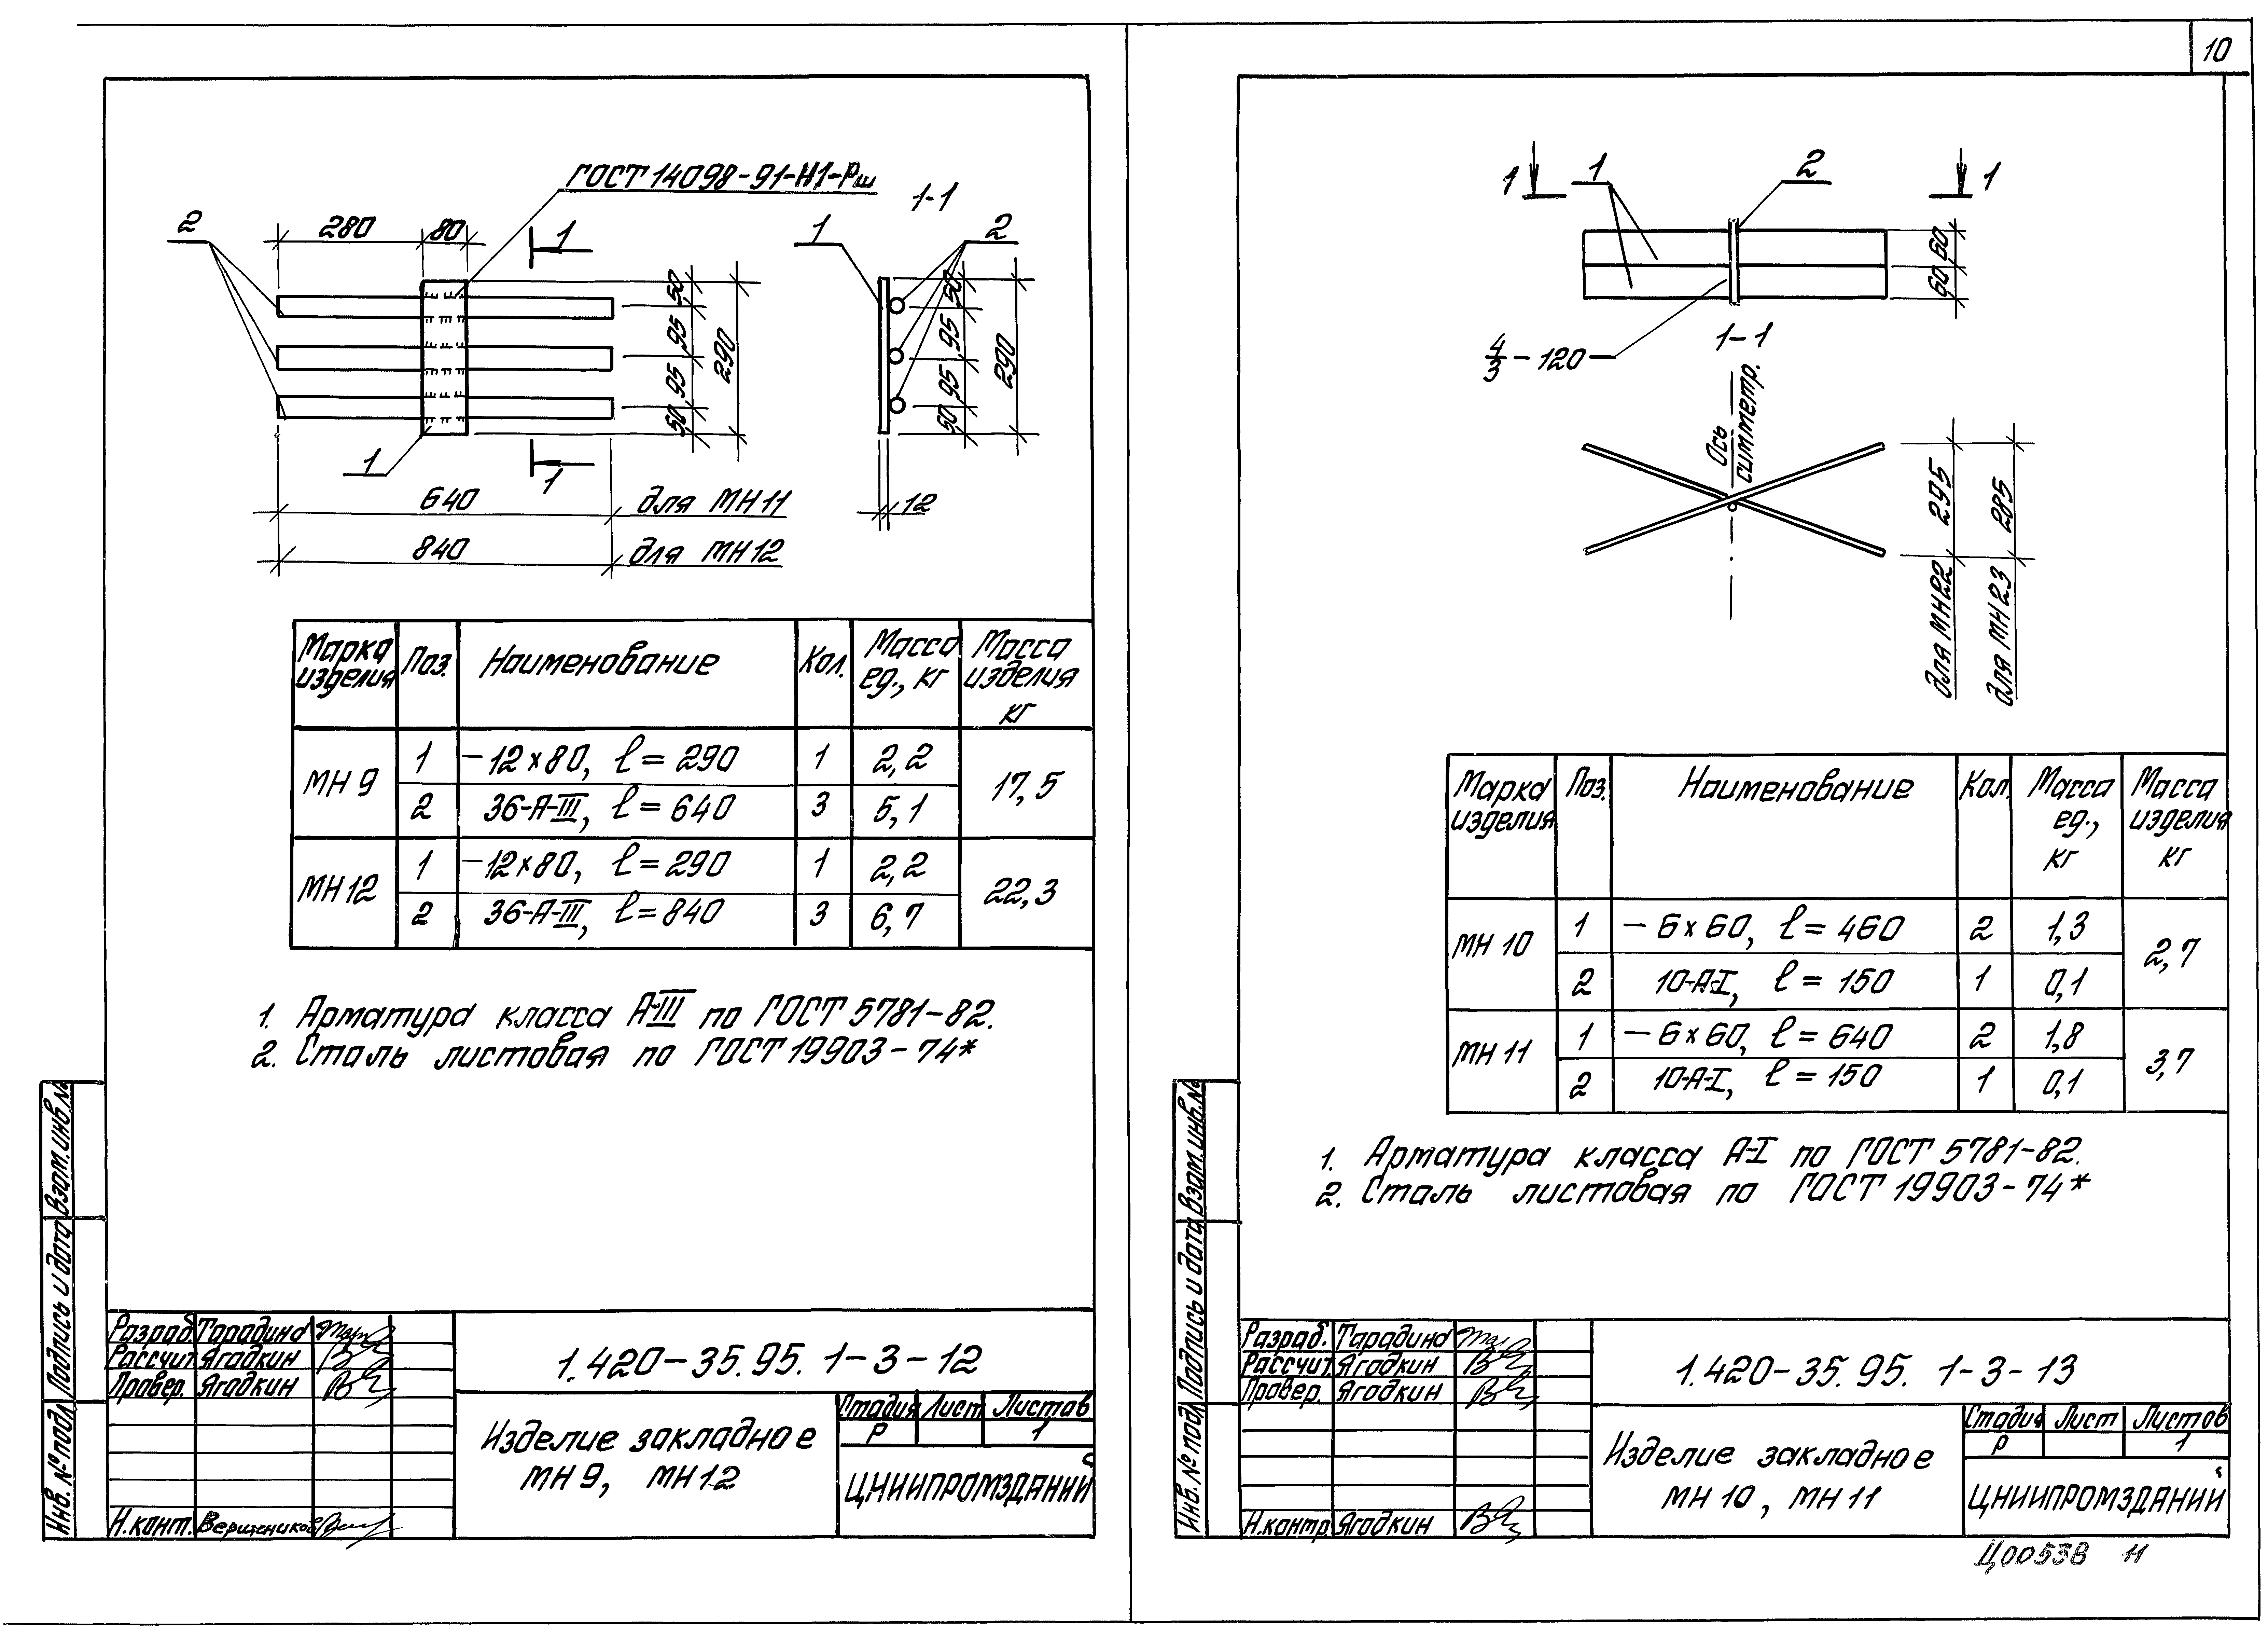 10
ГОСТ 14098-91-Н1-Рш
2
280
80
1
1-1
1
2
50
95
95
50
290
50
95
95
50
290
1
1
640 для МН11
12
840 для МН12
Марка изделия Поз. Наименование Кол. Масса ед., кг Масса изделия кг
МН 9 1 -12×80, ℓ=290 1 2,2 17,5
2 36-А-III, ℓ=640 3 5,1
МН 12 1 -12×80, ℓ=290 1 2,2 22,3
2 36-А-III, ℓ=840 3 6,7
1. Арматура класса А-III по ГОСТ 5781-82.
2. Сталь листовая по ГОСТ 19903-74*
Взам.инв.№
Подпись и дата
Инв.№ подл
Разраб. Тарадина
Рассчит Ягодкин
Провер. Ягодкин
Н.конт.
1.420-35.95. 1-3-12
Изделие закладное
МН 9, МН 12
Стадия Лист Листов
Р 1
ЦНИИПРОМЗДАНИЙ
1
1
2
1
60
60
4/3 - 120
1-1
Ось симметр.
для МН22 295
для МН23 285
Марка изделия Поз. Наименование Кол. Масса ед., кг Масса изделия кг
МН 10 1 - 6×60, ℓ=460 2 1,3 2,7
2 10-А-I, ℓ=150 1 0,1
МН 11 1 - 6×60, ℓ=640 2 1,8 3,7
2 10-А-I, ℓ=150 1 0,1
1. Арматура класса А-I по ГОСТ 5781-82.
2. Сталь листовая по ГОСТ 19903-74*
Взам.инв.№
Подпись и дата
Инв.№ подл
Разраб. Тарадина
Рассчит. Ягодкин
Провер. Ягодкин
Н.контр. Ягодкин
1.420-35.95. 1-3-13
Изделие закладное
МН 10, МН 11
Стадия Лист Листов
Р 1
ЦНИИПРОМЗДАНИЙ
Ц00538 11